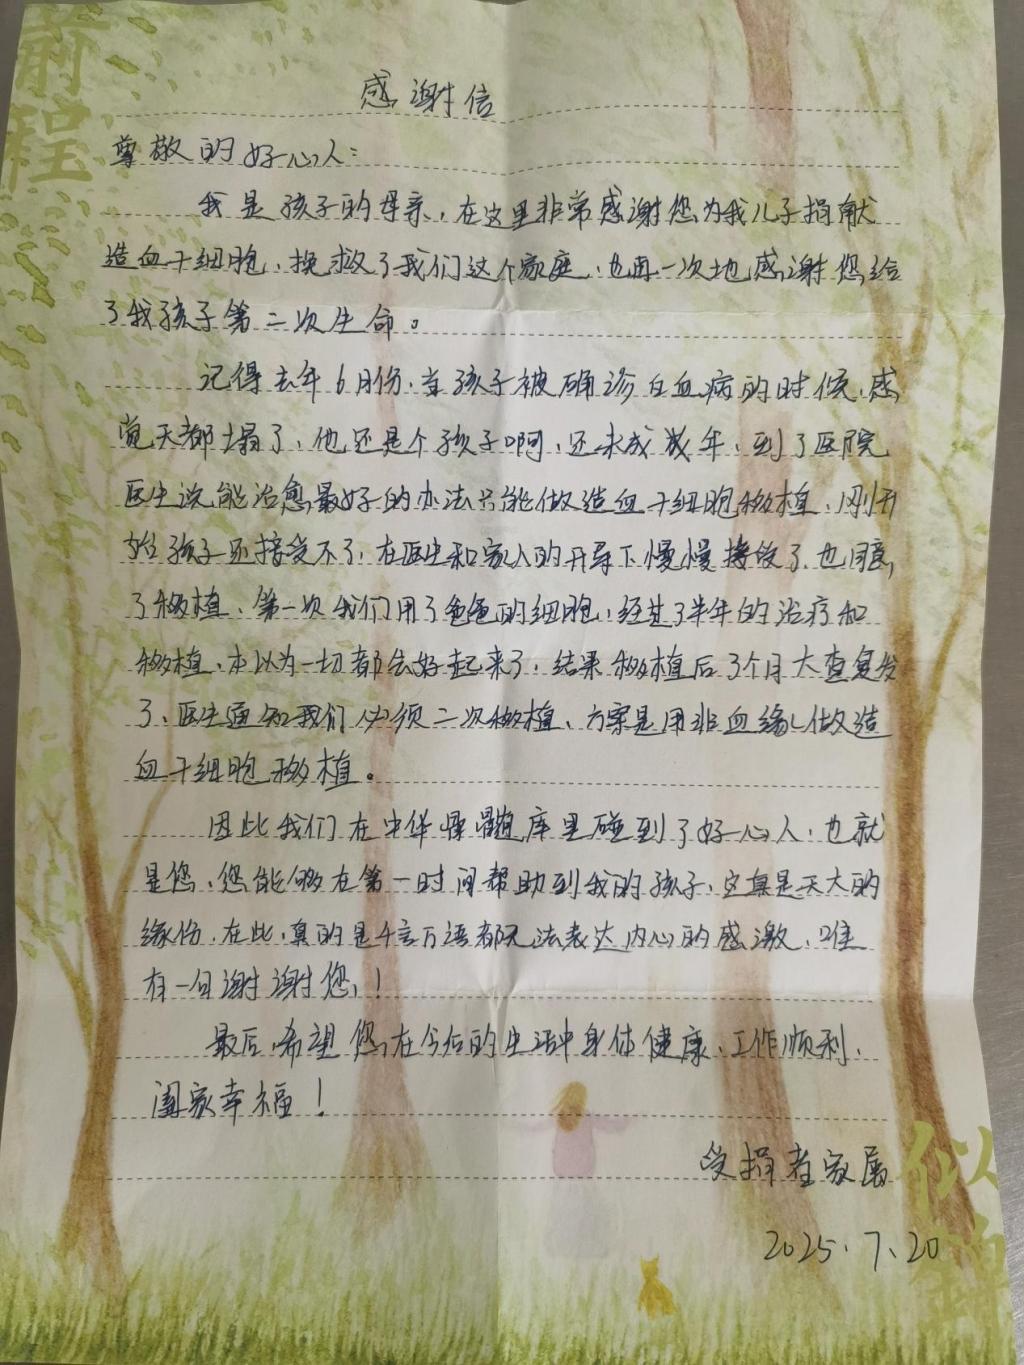 前程
感谢信
尊敬的好心人：
我是孩子的母亲，在这里非常感谢您为我儿子捐献
造血干细胞，挽救了我们这个家庭，也再一次地感谢您给
了我孩子第二次生命。
记得去年6月份，当孩子被确诊白血病的时候，感
觉天都塌了，他还是个孩子啊，还未成成年，到了医院
医生说能治愈最好的办法只能做造血干细胞移植，刚开
始孩子还接受不了，在医生和家人的开导下慢慢接受了，也同意
了移植，第一次我们用了爸爸的细胞，经过了半年的治疗和
移植，本以为一切都会好起来了，结果移植后3个月大查复发
了，医生通知我们必须二次移植，方案是用非血缘做造
血干细胞移植。
因此我们在中华骨髓库里碰到了好心人，也就
是您，您能够在第一时间帮助到我的孩子，这真是天大的
缘份，在此，真的是千言万语都无法表达内心的感激，唯
有一句谢谢您！
最后，希望您在今后的生活中身体健康，工作顺利，
阖家幸福！
受捐者家属
2025.7.20
似锦